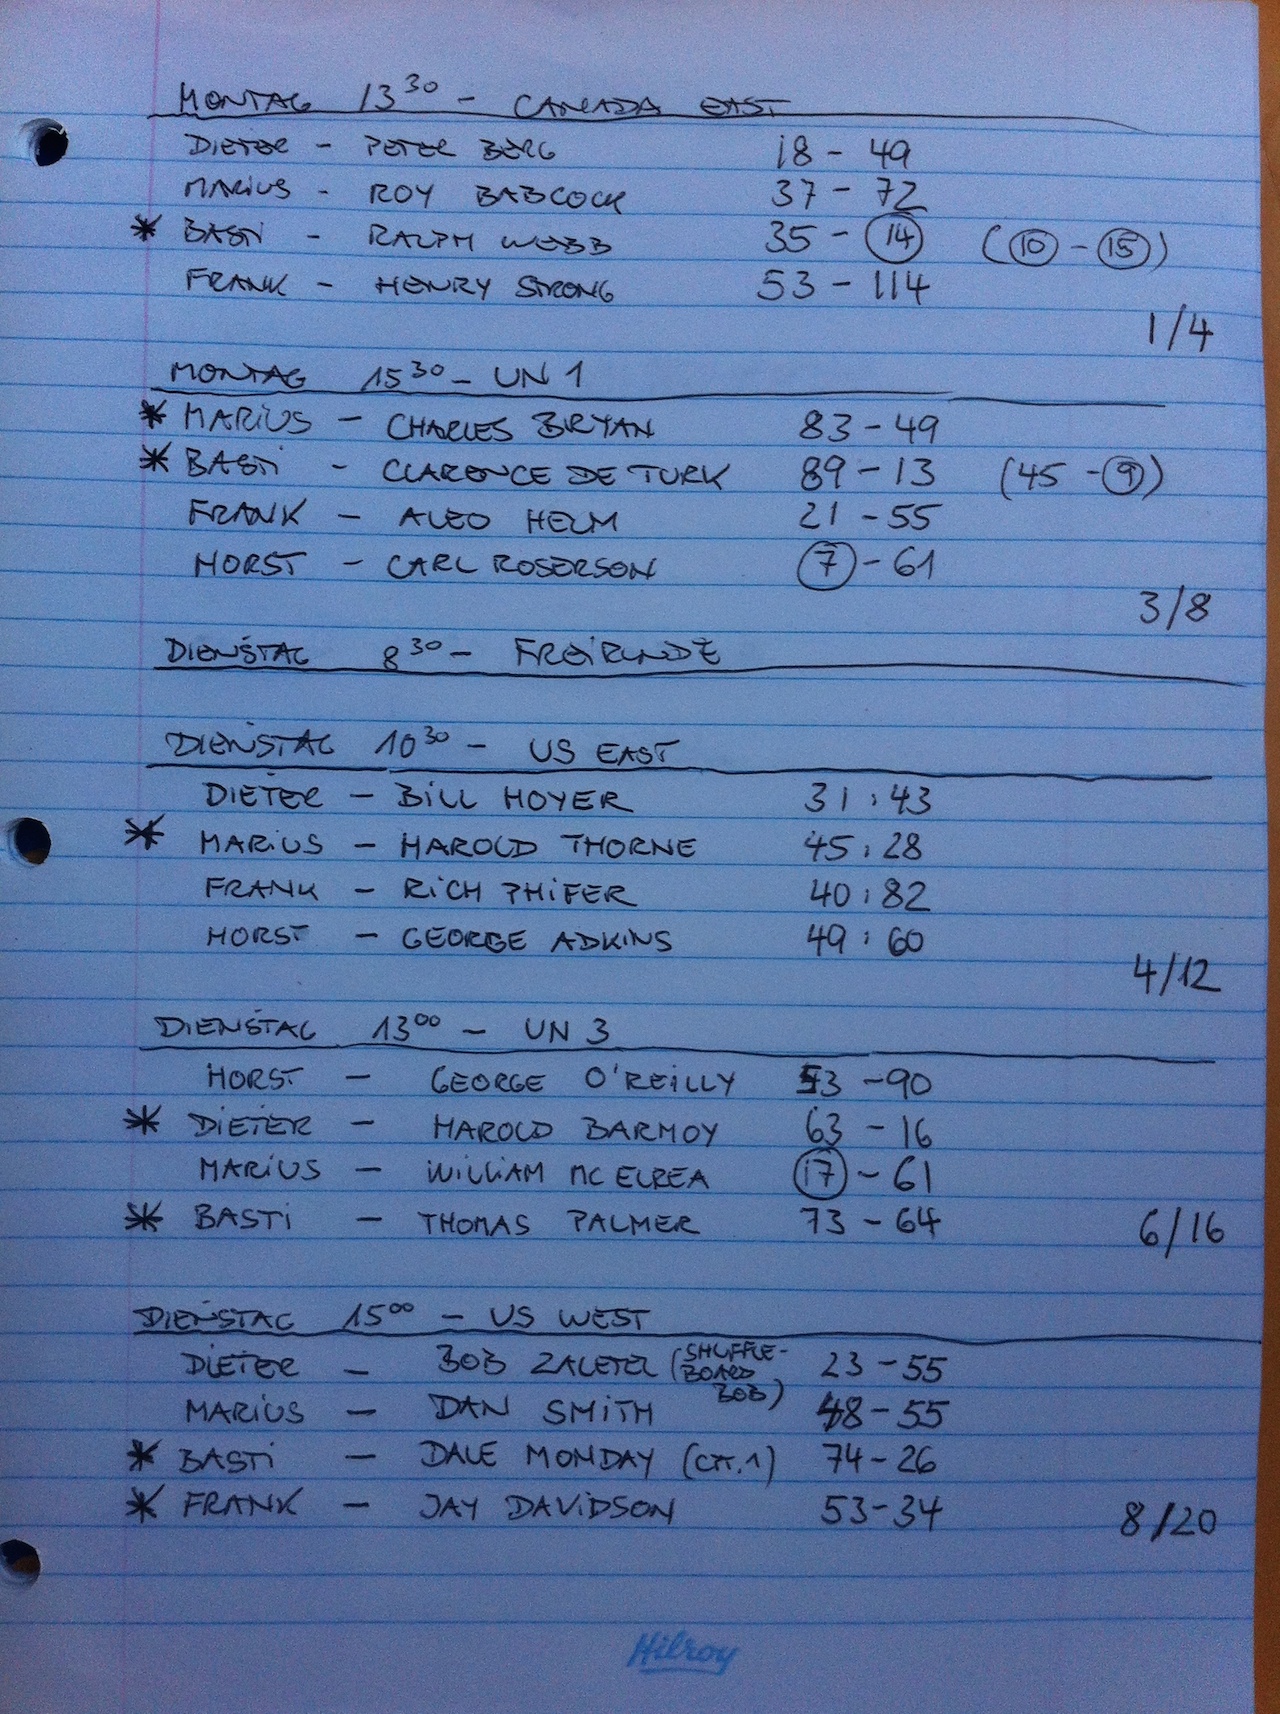 MONTAG 13 30 - CANADA EAST
DIETER - PETER BERG 18 - 49
MARIUS - ROY BABCOCK 37 - 72
* BASTI - RALPH WEBB 35 - 14 (10 - 15)
FRANK - HENRY STRONG 53 - 114
1/4
MONTAG 15 30 - UN 1
* MARIUS - CHARLES BRYAN 83 - 49
* BASTI - CLARENCE DE TURK 89 - 13 (45 - 9)
FRANK - ALEO HELM 21 - 55
HORST - CARL ROSERSON 7 - 61
3/8
DIENSTAG 8 30 - FREIRUNDE
DIENSTAG 10 30 - US EAST
DIETER - BILL HOYER 31 : 43
* MARIUS - HAROLD THORNE 45 : 28
FRANK - RICH PHIFER 40 : 82
HORST - GEORGE ADKINS 49 : 60
4/12
DIENSTAG 13 00 - UN 3
HORST - GEORGE O'REILLY 53 - 90
* DIETER - HAROLD BARMOY 63 - 16
MARIUS - WILLIAM MC ELREA 17 - 61
* BASTI - THOMAS PALMER 73 - 64
6/16
DIENSTAG 15 00 - US WEST
DIETER - BOB ZALETEL (SHUFFLE-BOARD BOB) 23 - 55
MARIUS - DAN SMITH 48 - 55
* BASTI - DALE MONDAY (CTT. 1) 74 - 26
* FRANK - JAY DAVIDSON 53 - 34
8/20
Hilroy